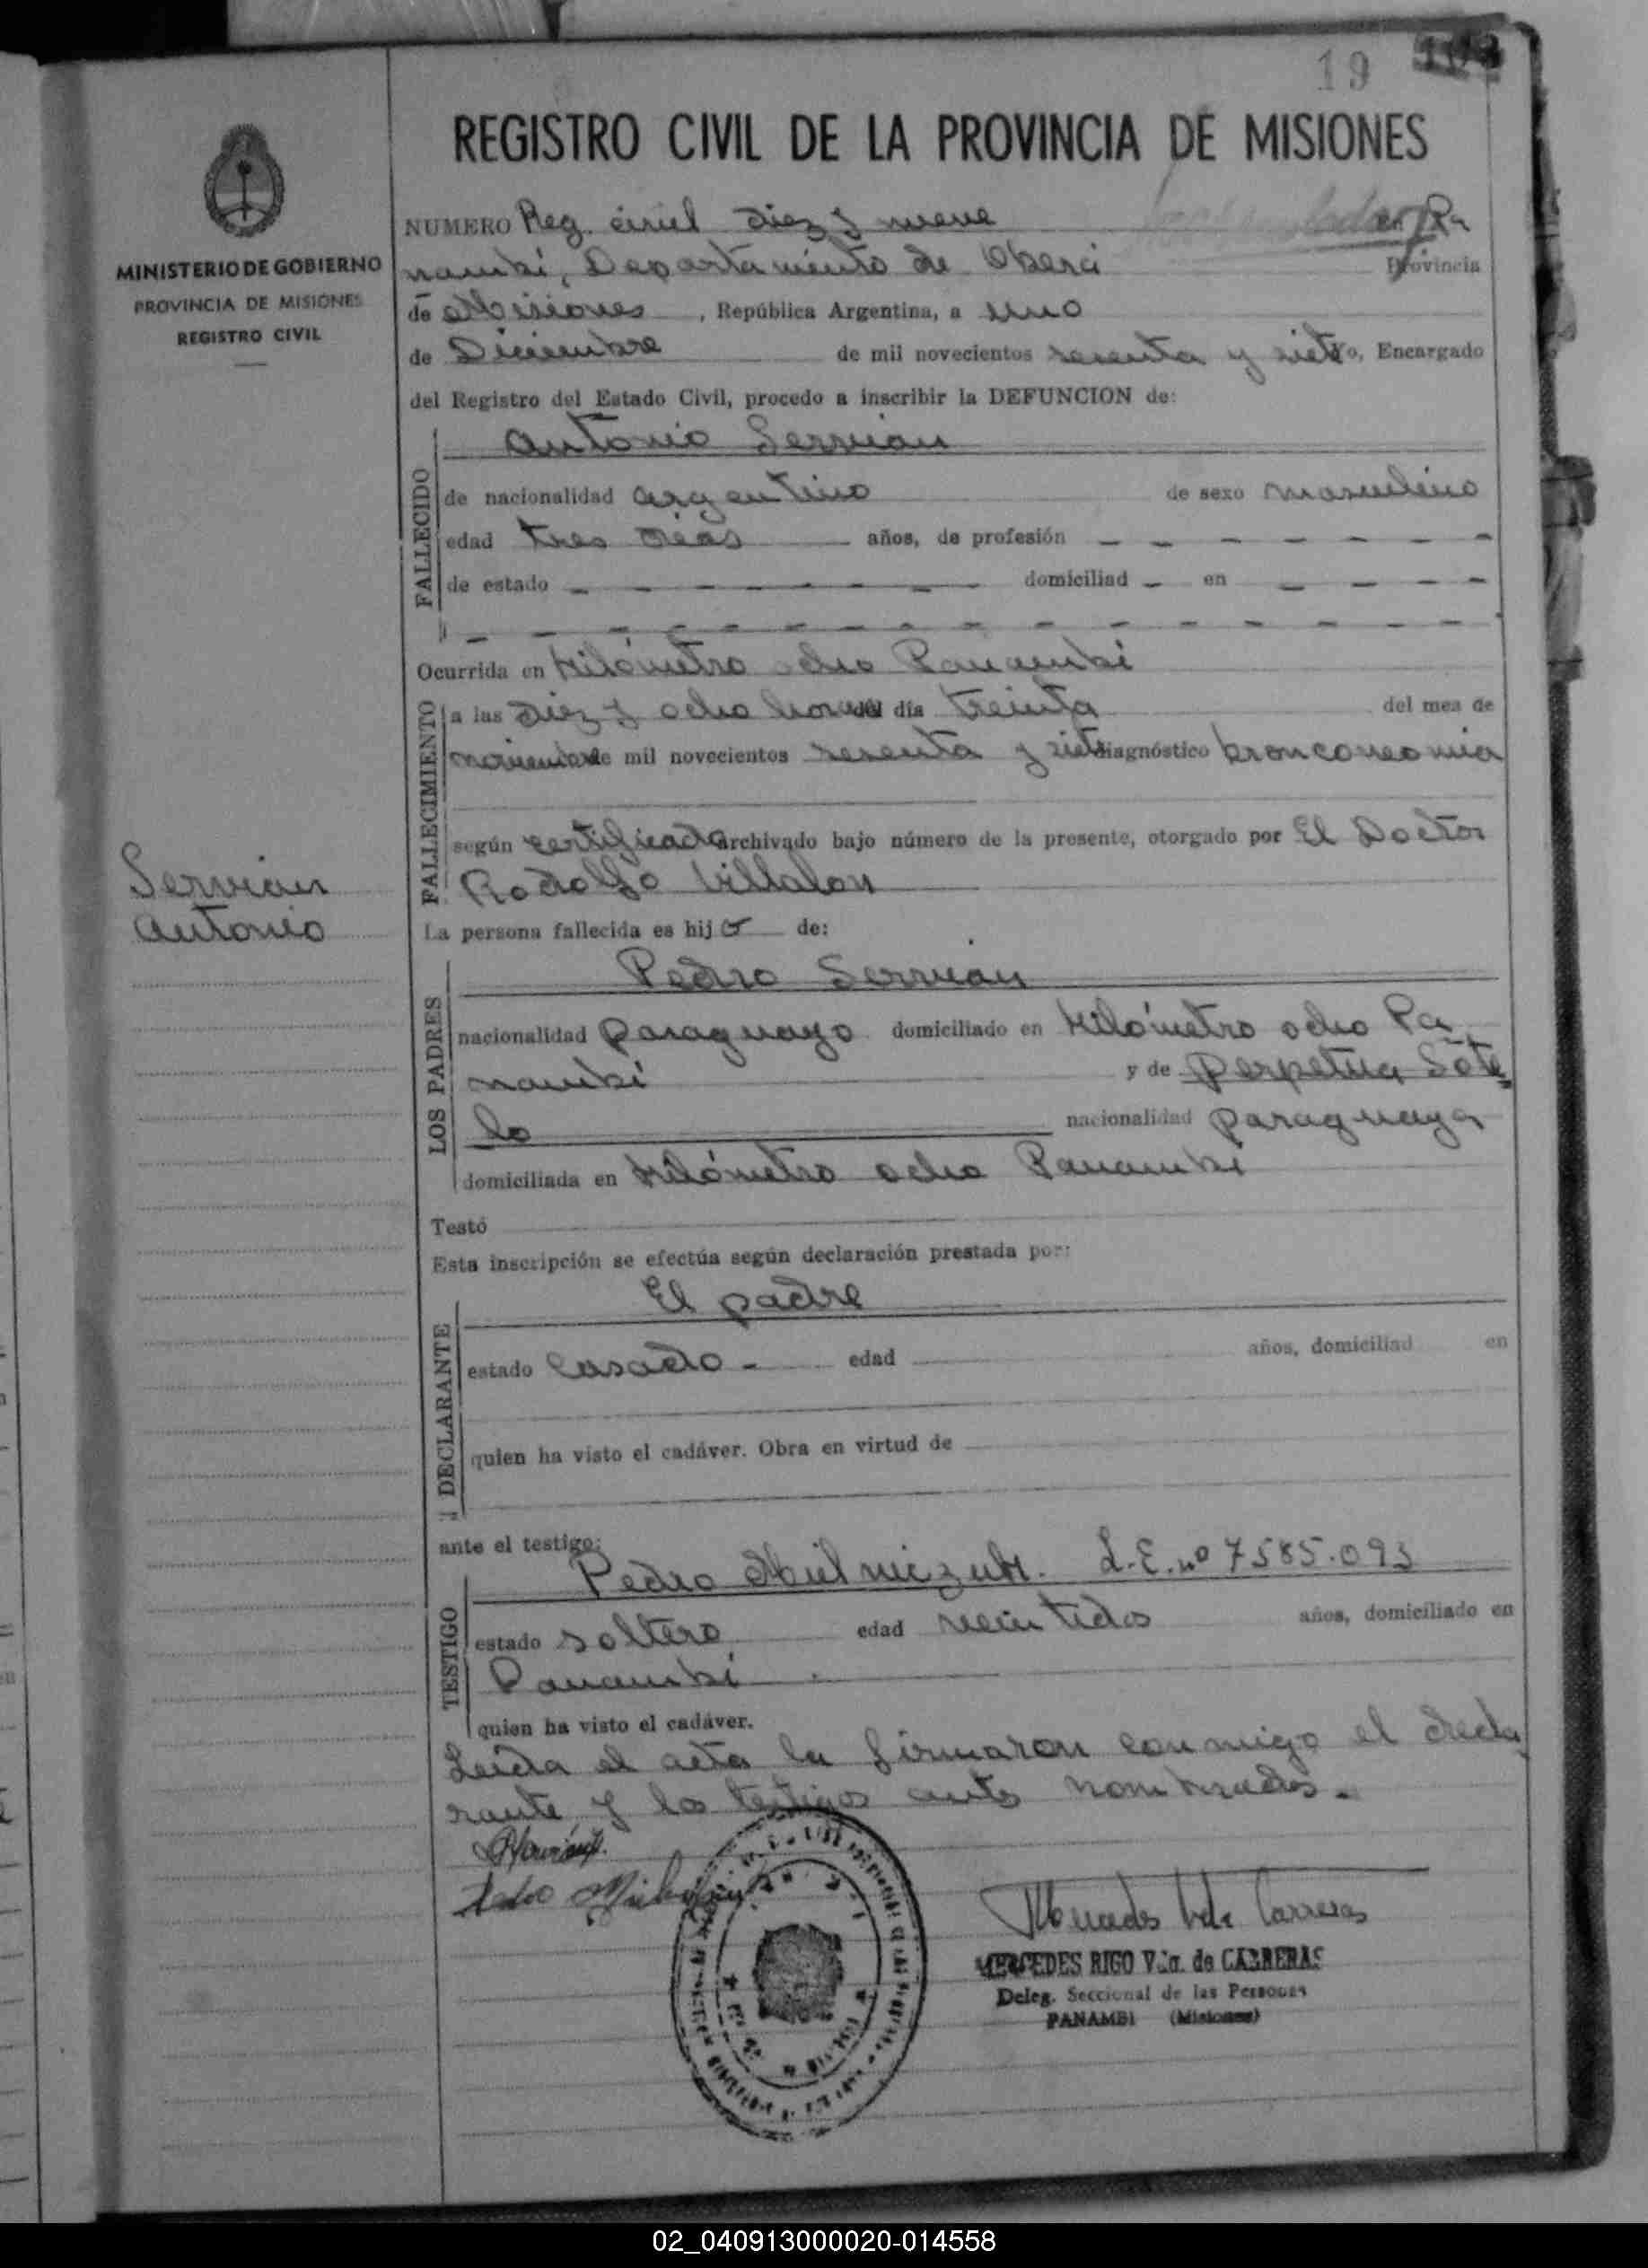 19
REGISTRO CIVIL DE LA PROVINCIA DE MISIONES
MINISTERIO DE GOBIERNO
PROVINCIA DE MISIONES
REGISTRO CIVIL
NUMERO Reg. civil Diez y nueve en Pa
nambi, Departamento de Oberá Provincia
de Misiones, República Argentina, a uno
de Diciembre de mil novecientos sesenta y siete Yo, Encargado
del Registro del Estado Civil, procedo a inscribir la DEFUNCION de:
Antonio Servian
FALLECIDO
de nacionalidad argentino de sexo masculino
edad tres dias años, de profesión - - - - - - -
de estado - - - - - - - domiciliad - en - - - -
- - - - - - - - - - - - -
Ocurrida en Kilómetro ocho Panambi
FALLECIMIENTO
a las Diez y ocho horas del día treinta del mes de
noviembre de mil novecientos sesenta y siete diagnóstico bronconeomia
según certificado archivado bajo número de la presente, otorgado por El Doctor
Rodolfo Villalon
Servian
Antonio
La persona fallecida es hijo de:
LOS PADRES
Pedro Servian
nacionalidad paraguayo domiciliado en Kilómetro ocho Pa
nambi y de Perpetua Sote
lo nacionalidad paraguaya
domiciliada en Kilómetro ocho Panambi
Testó
Esta inscripción se efectúa según declaración prestada por:
DECLARANTE
El padre
estado Casado - edad años, domiciliad en
quien ha visto el cadáver. Obra en virtud de
ante el testigo:
TESTIGO
Pedro L.E. nº 7585.093
estado soltero edad veintidos años, domiciliado en
Panambi.
quien ha visto el cadáver.
Leida el acta la firmaron conmigo el decla
rante y los testigos antes nombrados.-
MERCEDES RIGO Vda. de CARRERAS
Deleg. Seccional de las Personas
PANAMBI (Misiones)
02_040913000020-014558